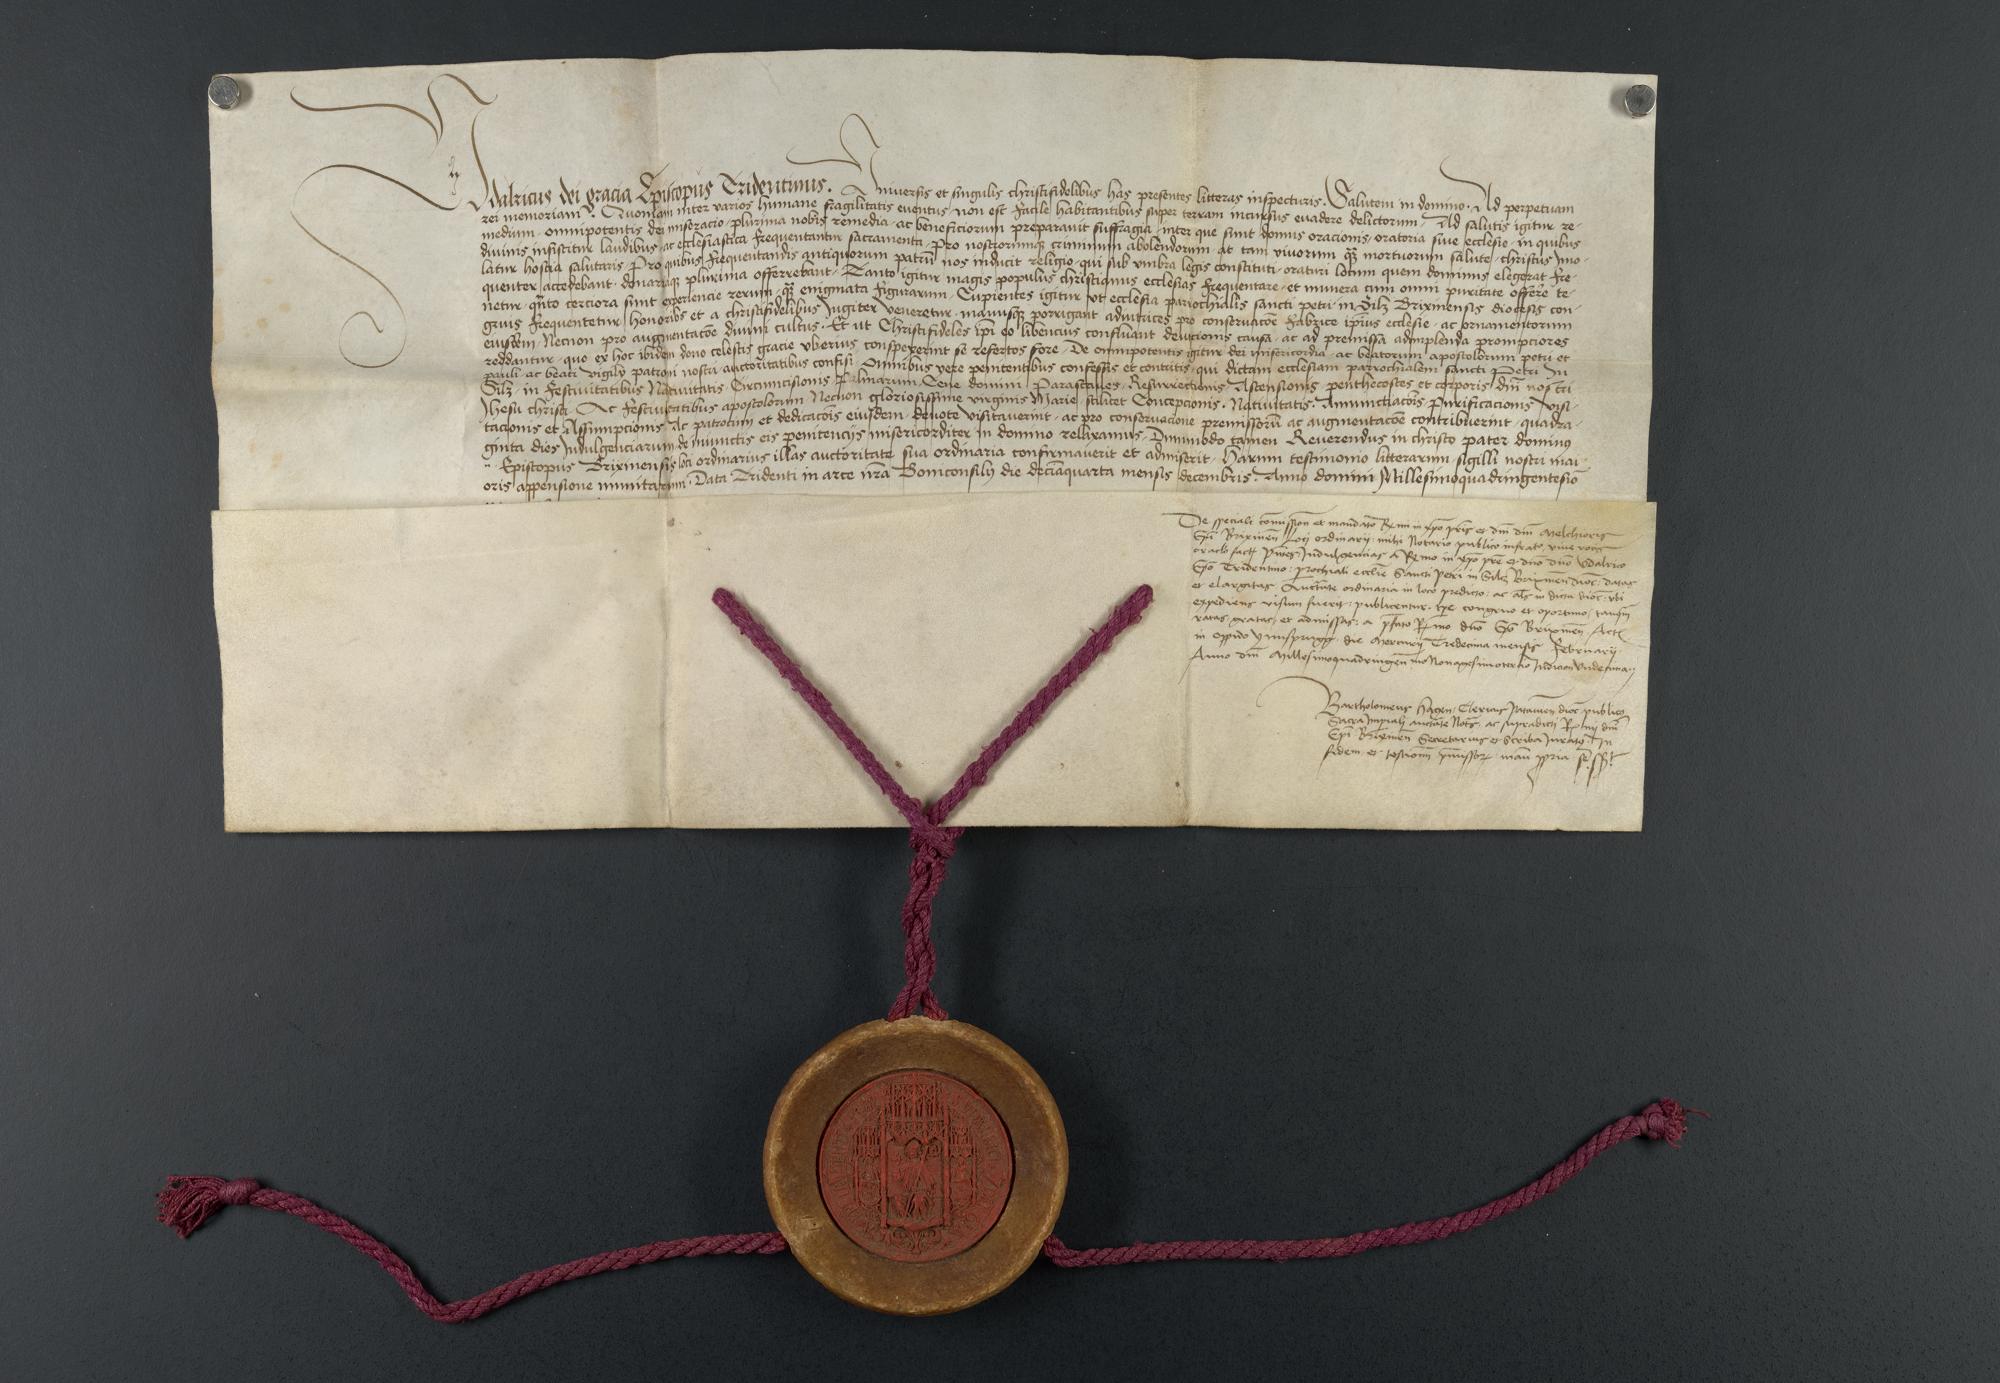 Udalricus dei gracia Episcopus Tridentinus. Universis et singulis christifidelibus has presentes litteras inspecturis. Salutem in domino. Ad perpetuam
rei memoriam. Quoniam inter varios humane fragilitatis eventus, non est facile habitantibus super terram incursus evadere delictorum. Ad salutis igitur re-
medium, omnipotentis dei miseracio, plurima nobis remedia, ac beneficiorum preparavit suffragia, inter que sunt domus oracionis, oratoria sive ecclesie, in quibus
divinis insistitur laudibus, ac ecclesiastica frequentantur sacramenta, pro nostrorumque criminum abolendorum, ac tam vivorum quam mortuorum salute, christus imo-
latur hostia salutaris. Pro quibus frequentandis antiquorum patrum nos inducit religio, qui sub umbra legis constituti, oraturi locum quem dominus elegerat fre-
quenter accedebant, donariaque plurima offerrebant. Tanto igitur magis populus christianus ecclesias frequentare, et munera cum omni puritate offerre te-
netur, quanto cerciora sunt experiencie rerum, quam enigmata figurarum. Cupientes igitur ut ecclesia parrochialis sancti petri in Silz Brixinensis diocesis con-
gruis frequentetur honoribus et a christifidelibus jugiter veneretur, manusque porrigant adiutrices pro conservacione fabrice ipsius ecclesie, ac ornamentorum
eiusdem, Necnon pro augmentacione divini cultus. Et ut Christifideles ipsi eo libencius confluant devocionis causa, ac ad premissa adimplenda prompciores
reddantur, quo ex hoc ibidem dono celestis gracie uberius conspexerint se refertos fore. De omnipotentis igitur dei misericordia, ac beatorum apostolorum petri et
pauli, ac beati Vigilij patroni nostri auctoritatibus confisi. Omnibus vere penitentibus confessis et contritis, qui dictam ecclesiam parrochialem sancti Petri in
Silz, in festivitatibus Nativitatis, Circumcisionis, Palmarum, Cene domini, Parasceves, Resurrectionis, Ascensionis, penthecostes et corporis domini nostri
Jhesu christi. Ac festivitatibus apostolorum, Necnon gloriosissime virginis Marie, scilicet Concepcionis, Nativitatis, Annunctiacionis, Purificacionis, Visi-
tacionis et Assumpcionis. Ac patrocinij et dedicacionis eiusdem, devote visitaverint, ac pro conservacione premissorum ac augmentacione contribuerint, quadra-
ginta dies Indulgenciarum de iniunctis eis penitencijs misericorditer in domino relaxamus. Dummodo tamen Reverendus in christo pater dominus
.. Episcopus Brixinensis loci ordinarius illas auctoritate sua ordinaria confirmaverit et admiserit. Harum testimonio litterarum, sigilli nostri mai-
oris appensione munitarum. Data Tridenti in arce nostra Boniconsilij die decimaquarta mensis decembris. Anno domini Millesimoquadringentesimo
De speciali commissione et mandato Reverendissimi in christo patris et domini domini Melchioris
Episcopi Brixinensis Loci ordinarij: mihi Notario publico infrascripto, vive vocis
oraculo factis presentes Indulgencias a Reverendissimo in christo patre et domino domino Udalrico
Episcopo Tridentino: parrochiali ecclesie Sancti Petri in Silz Brixinensis diocesis: datas
et elargitas. Auctoritate ordinaria in loco predicto: ac alias in dicta diocesi: ubi
expediens visum fuerit: publicentur, tempore congruo et oportuno, tanquam
ratas, gratas, et admissas: a prefato Reverendissimo domino Episcopo Brixinensi. Acta
in oppido Ynnsprugg, die Mercurij Tredecima mensis Februarij
Anno domini Millesimoquadringentesimo Nonagesimotercio Indicione Undecima
Bartholomeus Hagen, Clericus Patavien dioc publicus
Sacra Imperiali auctoritate Notarius, ac supradicti Reverendissimi domini
Episcopi Brixinensis Secretarius et Scriba Juratus In
fidem et testimonium premissorum manu propria se subscripsit